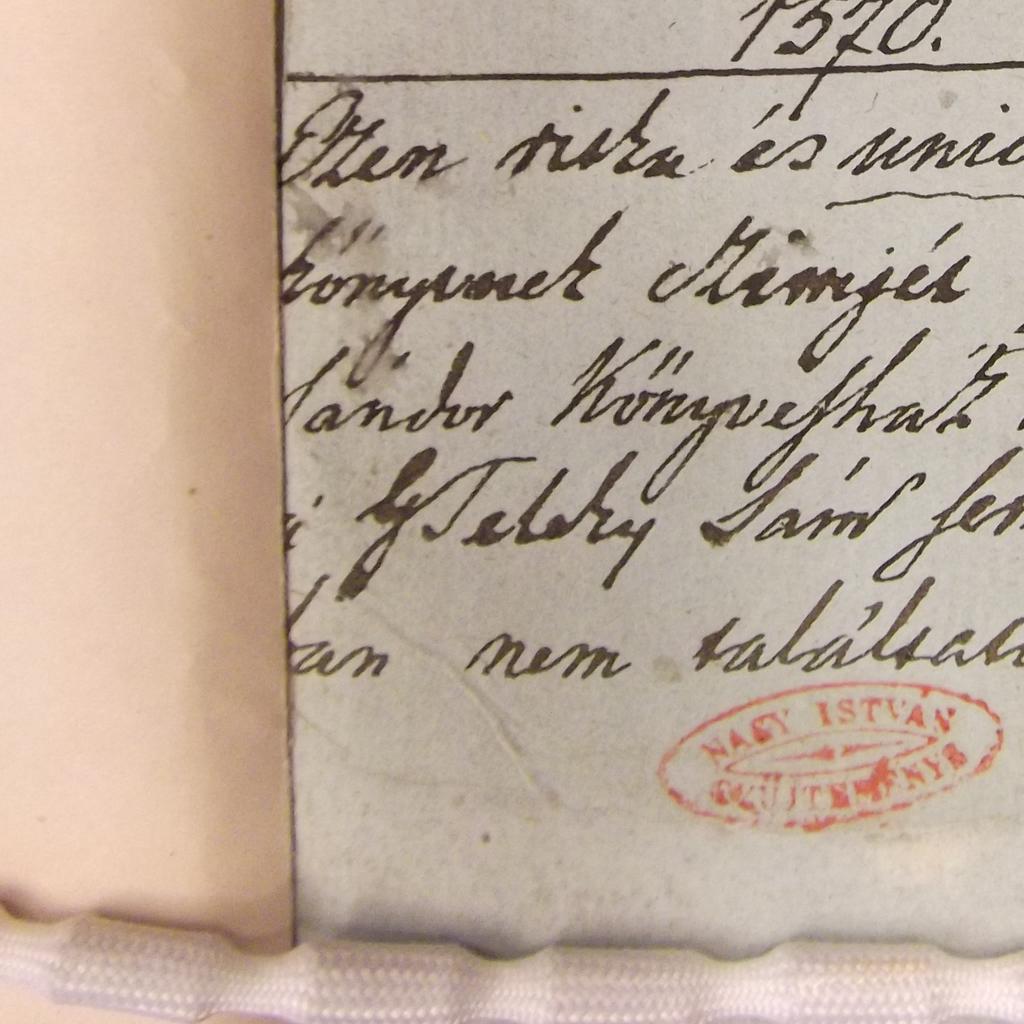 1570.
Ezen ritka és unic
könyvnek Czimjét
Sándor Könyvesházt
G Teleky Sám
ban nem találtat
NAGY ISTVÁN
GYŰJTEMÉNYE